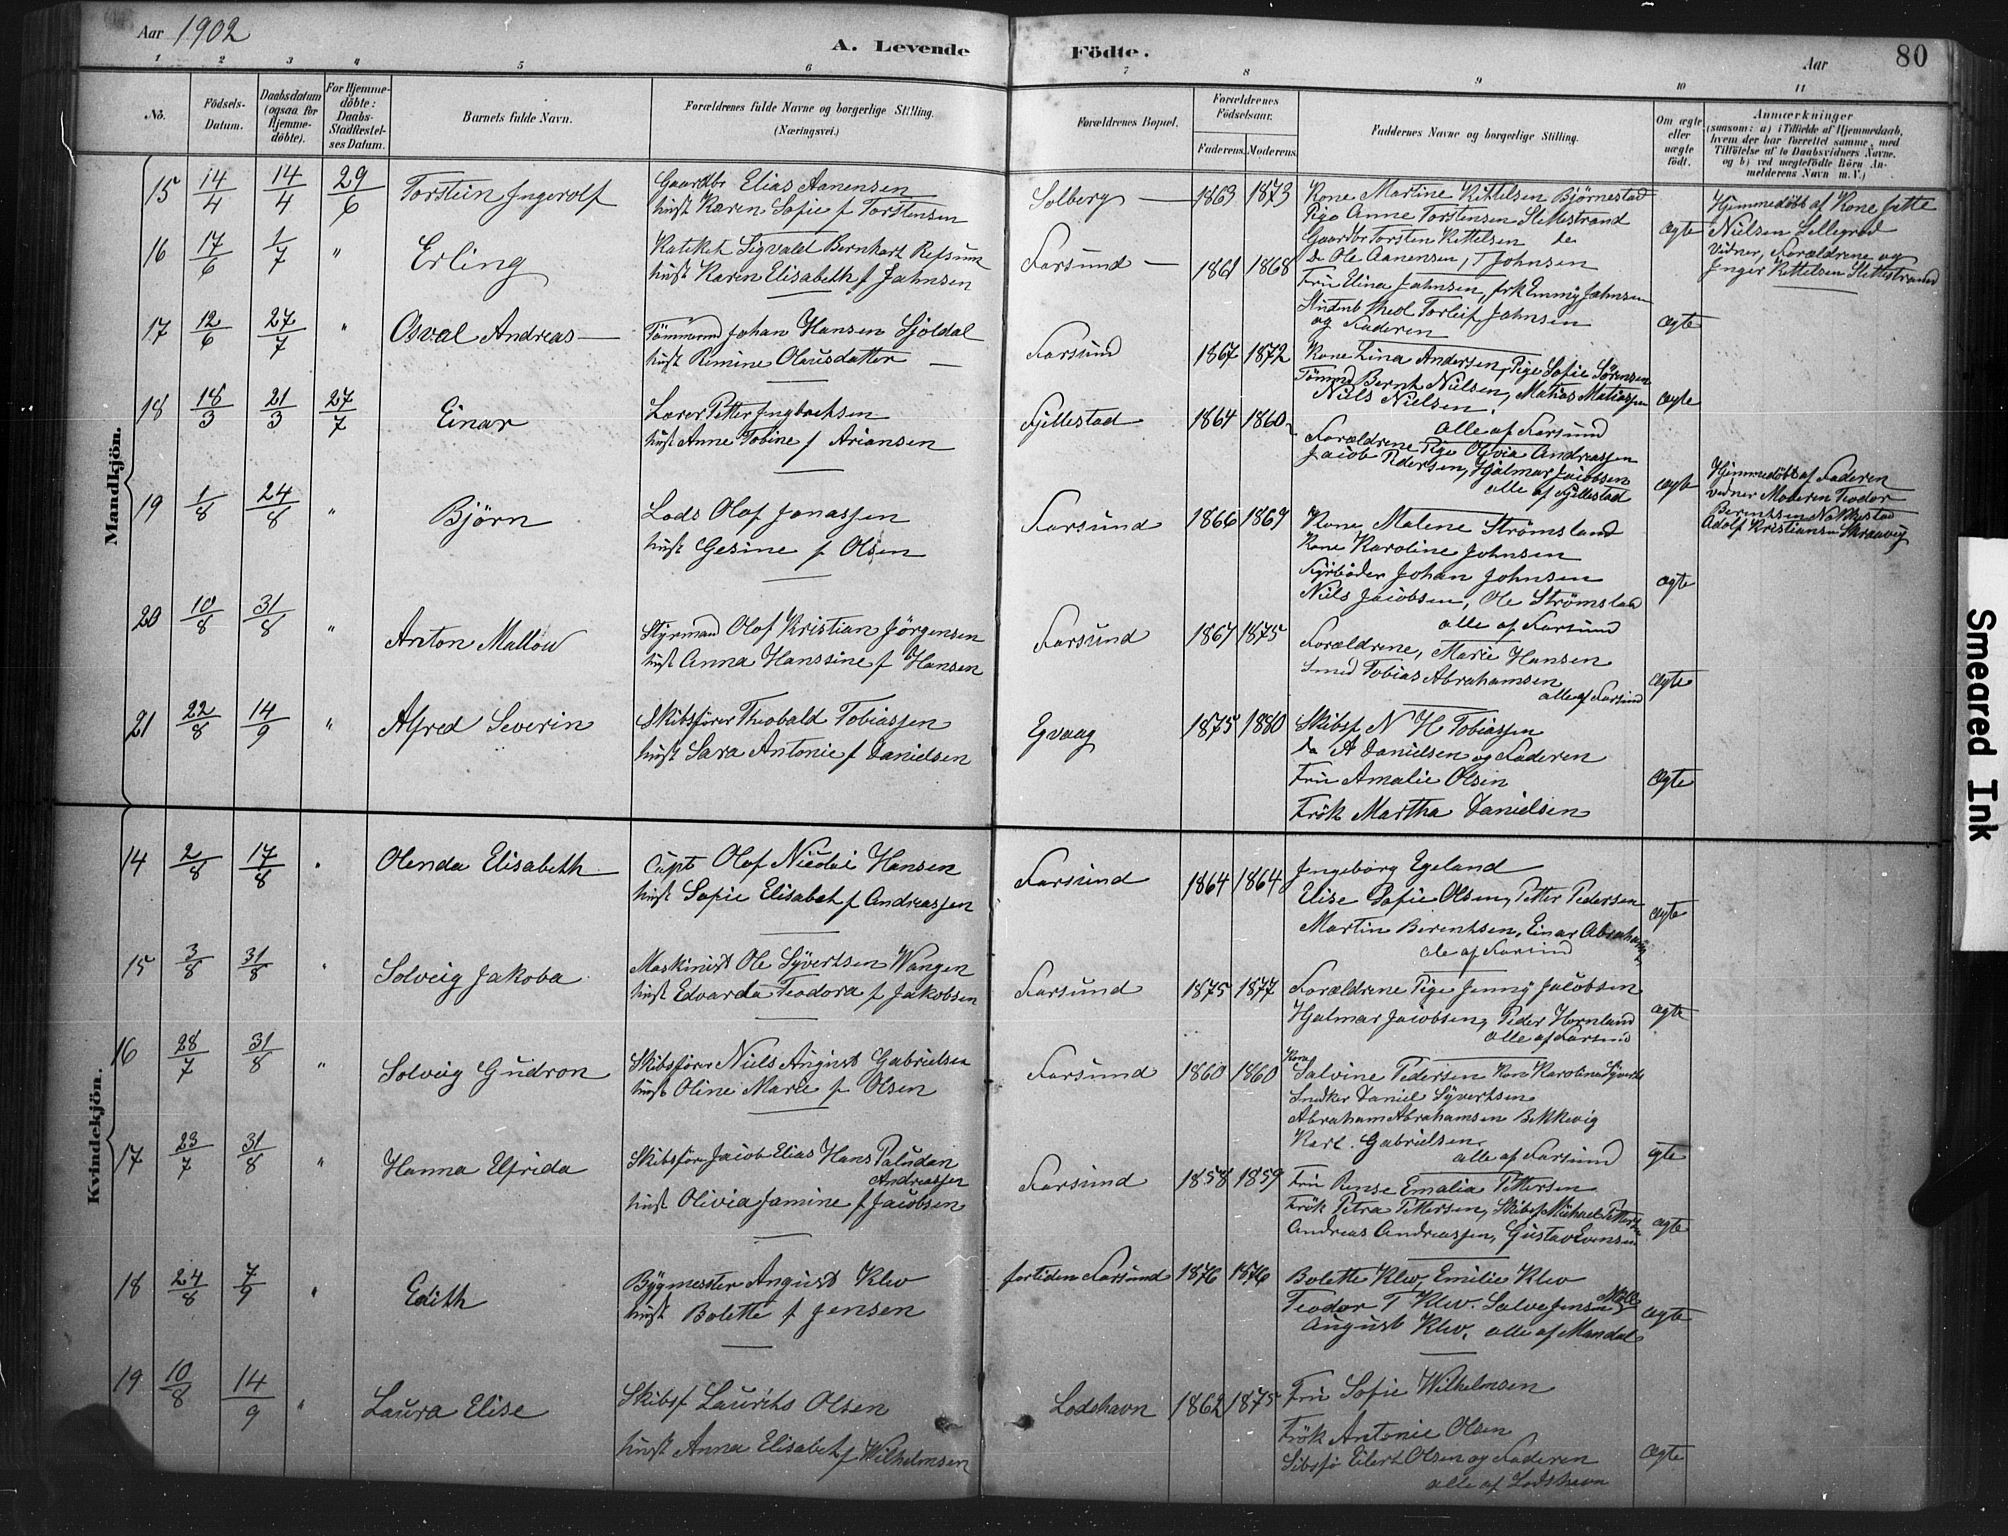 Aar 1902
A. Levende Födte.
Aar
80
1 2 3 4 5 6 7 8 9 10 11
No.
Födsels-
Datum.
Daabsdatum
(ogsaa for
Hjemme-
döbte).
For Hjemme-
döbte:
Daabs-
Stadfæstel-
ses Datum.
Barnets fulde Navn.
Forældrenes fulde Navne og borgerlige Stilling.
(Næringsvei.)
Forældrenes Bopæl.
Forældrenes
Födselsaar.
Faderens. Moderens.
Faddernes Navne og borgerlige Stilling.
Om ægte
eller
uægte
födt.
Anmærkninger
(saasom: a) i Tilfælde af Hjemmedaab,
hvem der har forrettet samme, med
Tilföielse af to Daabsvidners Navne.
og b) ved uægtefödte Börn An-
melderens Navn m. V.)
Mandkjön.
15 14/4 14/4 29/6 Torstein Ingerolf
Gaardbr Elias Aanensen
hust Karen Sofie f Torstensen
Solberg 1863 1873
Kone Martine Kittelsen Björnestad
Pige Anne Torstensen Slettestrand
Gaardbr Torsten Kettelsen do
do Ole Aanensen, T Johnsen
ægte
Hjemmedöbt af Kone Jitte
Nielsen Sellegrod
Vidner, Forældrene og
Inger Kettelsen Slettestrand
16 17/6 1/7 " Erling
Kateket Sigvald Bernhart Refsum
hust Karen Elisabeth f Jahnsen
Farsund 1861 1868
Fru Elina Jahnsen, frk Emmy Jahnsen
Student theol Torleif Jahnsen
og Faderen
ægte
17 12/6 27/7 " Osval Andreas
Tömmermd Johan Hansen Sjoldal
hust Remine Olausdatter
Farsund 1867 1872
Kone Lina Andersen, Pige Sofie Sörensen
Tömmd Bernt Nielsen, Matias Matiassen
Niels Nielsen.
alle af Farsund
ægte
18 18/3 21/3 27/7 Einar
Lærer Petter Ingbretsen
hust Anne Tobine f Ariansen
Fjellestad 1864 1860
Forældrene Pige Olevia Andreassen
Jacob Pedersen, Hjalmar Jacobsen
alle af Fjellestad
ægte
Hjemmedöbt af Faderen
vidner Moderen Teodor
Berentsen
Adolf Kristiansen
19 1/8 24/8 " Björn
Lods Olaf Jonassen
hust Gesine f Olsen
Farsund 1866 1869
Kone Malene Strömsland
Kone Karoline Johnsen
Fyrböder Johan Johnsen
Niels Jacobsen, Ole Strömsland
alle af Farsund
ægte
20 10/8 31/8 " Anton Mallow
Styrmand Olaf Kristian Jörgensen
hust Anna Hanssine f Hansen
Farsund 1867 1875
Forældrene, Marie Hansen
Smed Tobias Abrahamsen
alle af Farsund
ægte
21 22/8 14/9 " Alfred Severin
Skibsförer Theobald Tobiassen
hust Sara Antonie f Danielsen
Egvaag 1875 1880
Skibsf N H Tobiassen
do A Danielsen og Faderen
Fru Amalie Olsen
Frök Martha Danielsen
Ægte
Kvindekjön.
14 2/8 17/8 " Olenda Elisabeth
Capt Olaf Nicolai Hansen
hust Sofie Elisabet f Andreassen
Farsund 1864 1864
Ingeborg Egeland
Elise Sofie Olsen, Petter Pedersen
Martin Berentsen, Einar Abrahamsen
ale af Farsund
ægte
15 3/8 31/8 " Solveig Jakoba
Maskinist Ole Syvertsen Wangen
hust Edvarda Teodora f Jakobsen
Farsund 1875 1877
Forældrene Pige Jenny Jacobsen
Hjalmar Jacobsen, Peder Hornland
alle af Farsund
ægte
16 28/7 31/8 " Solveig Gudron
Skibsförer Niels August Gabrielsen
hust Oline Marie f Olsen
Farsund 1860 1860
Kone
Salvine Pedersen Kone Karoline Syverts
Snedker Daniel Syvertsen
Abraham Abrahamsen Bekkevig
Karl Gabrielsen
alle af Farsund
ægte
17 23/7 31/8 " Hanna Elfrida
Skibsför Jacob Elias Hans Paludan
Andreassen
hust Olivia Jamine f Jacobsen
Farsund 1858 1859
Fru Rense Emalia Pettersen
Frök Petra Pettersen, Skibsf Michael Petters
Andreas Andreassen, Gustav Evensen
ægte
18 24/8 7/9 " Edith
Bygmester August Klev
hust Bolette f Jensen
fortiden Farsund 1876 1876
Bolette Klev, Emilie Klev
Teodor T Klev. Salve Jensen
August Klev. alle af Mandal
ægte
19 10/8 14/9 " Laura Elise
Skibsf Laurits Olsen
hust Anna Elisabet f Wilhelmsen
Lodshavn 1862 1875
Fru Sofie Wilhelmsen
Frök Antonie Olsen
Sibsfö Eilert Olsen og Faderen
alle af Lodshavn
ægte
Smeared Ink